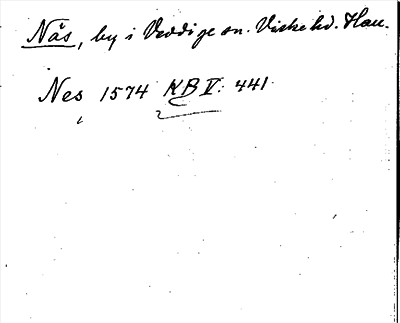 Näs, by i Veddige sn. Viske hd. Hall.
Nes 1574 KB V: 441